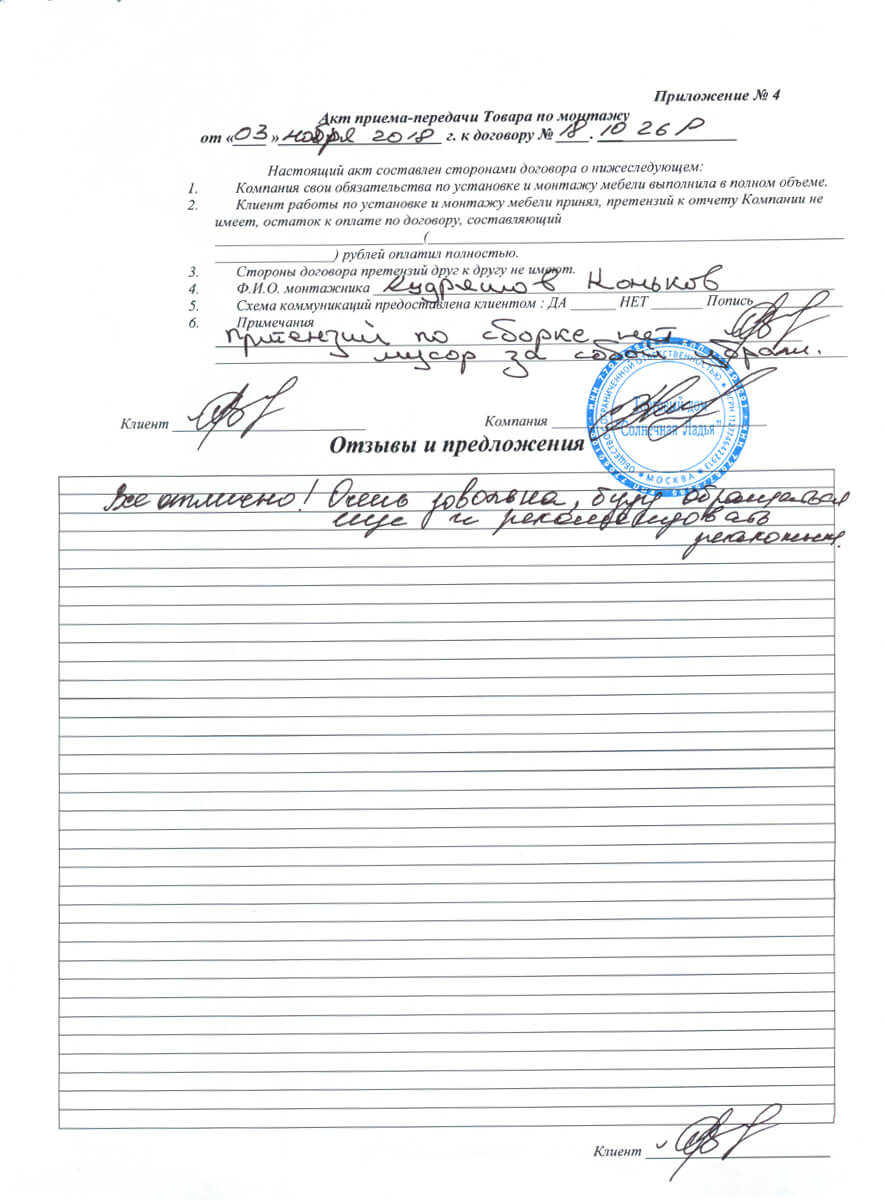 Приложение № 4
Акт приема-передачи Товара по монтажу
от «03» ноября 2018 г. к договору № 18. 10 26 Р
Настоящий акт составлен сторонами договора о нижеследующем:
1. Компания свои обязательства по установке и монтажу мебели выполнила в полном объеме.
2. Клиент работы по установке и монтажу мебели принял, претензий к отчету Компании не
имеет, остаток к оплате по договору, составляющий
(
) рублей оплатил полностью.
3. Стороны договора претензий друг к другу не имеют.
4. Ф.И.О. монтажника Кудряшов Коньков
5. Схема коммуникаций предоставлена клиентом : ДА ______ НЕТ ______ Попись
6. Примечания
Притензий по сборке нет
мусор за собой убрали.
Клиент
Компания
Торговый дом
"Солнечная Ладья"
МОСКВА
Отзывы и предложения
Все отлично! Очень довольна, буду обращаться
еще и рекомендовать
знакомым.
Клиент